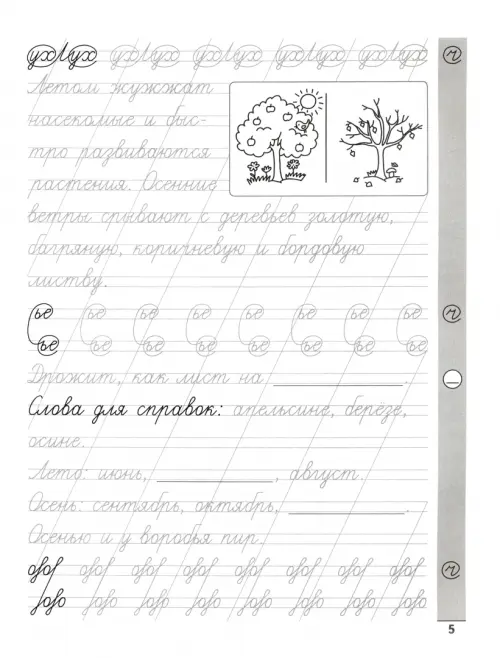 ух ух ух ух ух ух ух ух ух ух
Летом жужжат
насекомые и быс-
тро развиваются
растения. Осенние
ветры срывают с деревьев золотую,
багряную, коричневую и бордовую
листву.
ье ье ье ье ье ье ье ье
ье ье ье ье ье ье ье ье
Дрожит, как лист на ____________.
Слова для справок: апельсине, берёзе,
осине.
Лето: июнь, ____________, август.
Осень: сентябрь, октябрь, ____________.
Осенью и у воробья пир.
5